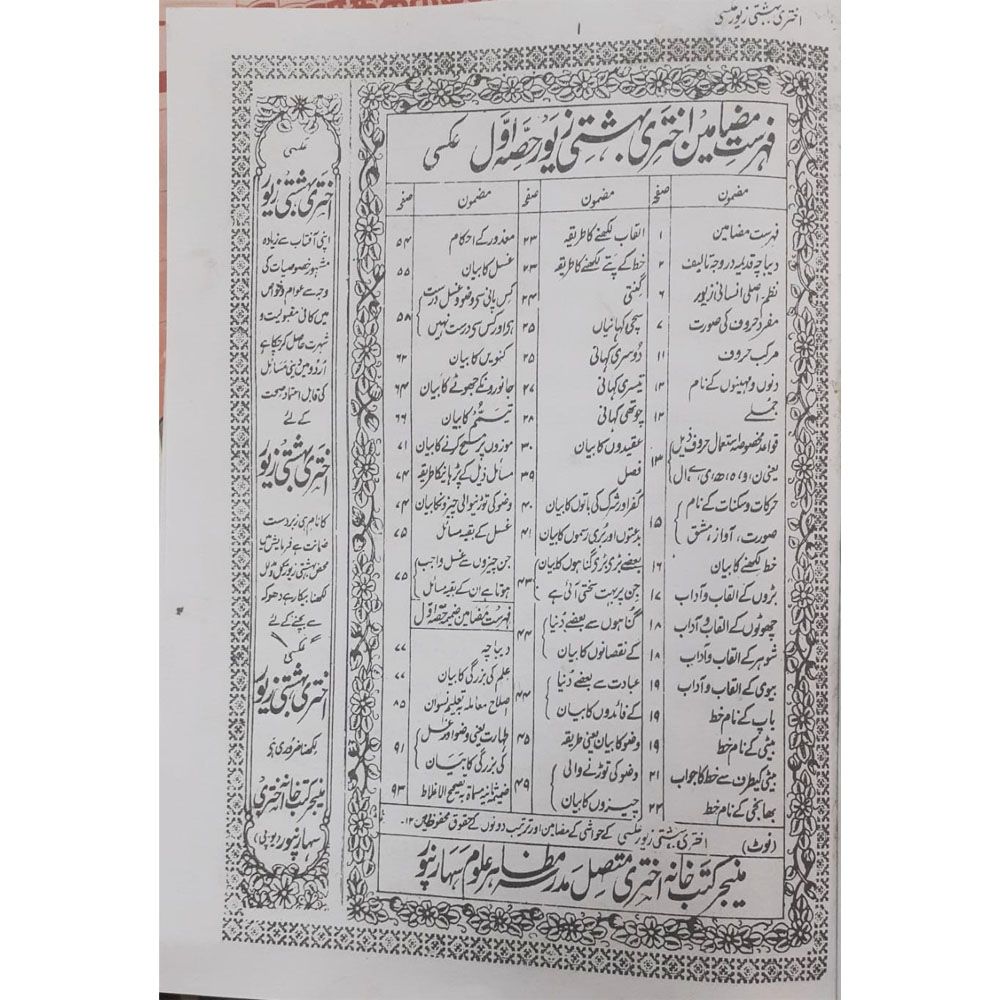 اختری بہشتی زیور عکسی
۱
فہرست مضامین اختری بہشتی زیور حصہ اوّل عکسی
مضمون صفحہ مضمون صفحہ مضمون صفحہ
فہرست مضامین ۱
دیباچہ قدیمہ در وجہ تالیف ۲
نظم اصلی انسانی زیور ۶
مفرد حروف کی صورت ۷
مرکب حروف ۱۱
دنوں و مہینوں کے نام ۱۲
جملے ۱۲
قواعد مخصوصہ استعمال حروف ذیل
یعنی ن، و، ہ، ھ، ی، ے، ال ۱۳
حرکات و سکنات کے نام
صورت، آواز مشق ۱۵
خط لکھنے کا بیان ۱۶
بڑوں کے القاب و آداب ۱۷
چھوٹوں کے القاب و آداب ۱۸
شوہر کے القاب و آداب ۱۸
بیوی کے القاب و آداب ۱۹
باپ کے نام خط ۱۹
بیٹی کے نام خط ۱۹
بیٹی کیطرف سے خط کا جواب ۲۱
بھانجی کے نام خط ۲۲
القاب لکھنے کا طریقہ ۲۳
خط کے پتے لکھنے کا طریقہ ۲۳
گنتی ۲۴
سچی کہانیاں ۲۵
دوسری کہانی ۲۵
تیسری کہانی ۲۷
چوتھی کہانی ۲۸
عقیدوں کا بیان ۳۰
فصل ۳۹
کفر اور شرک کی باتوں کا بیان ۴۰
بدعتوں اور بُری رسموں کا بیان ۴۱
بعضے بڑے بڑے گناہوں کا بیان
جن پر بہت سختی آئی ہے ۴۳
گناہوں سے بعضے دُنیا
کے نقصانوں کا بیان ۴۴
عبادت سے بعضے دُنیا
کے فائدوں کا بیان ۴۴
وضو کا بیان یعنی طریقہ ۴۵
وضو کی توڑنے والی
چیزوں کا بیان ۴۹
معذور کے احکام ۵۴
غسل کا بیان ۵۵
کس پانی سے وضو و غسل درست
ہے اور کس سے درست نہیں ۵۸
کنویں کا بیان ۶۲
جانورونکے جھوٹے کا بیان ۶۴
تیمّم کا بیان ۶۶
موزوں پر مسح کرنے کا بیان ۷۱
مسائل ذیل کے پڑھانیکا طریقہ ۷۴
وضو کی توڑنیوالی چیزونکا بیان ۷۴
غسل کے بقیہ مسائل ۷۵
جن چیزوں سے غسل واجب
ہوتا ہے ان کے بقیہ مسائل ۷۵
فہرست مضامین ضمیمہ حصہ اوّل
دیباچہ ۷۷
علم کی بزرگی کا بیان ۷۷
اصلاح معاملہ بہ تعلیم نسواں ۸۵
طہارت یعنی وضو اور غسل
کی بزرگی کا بیان ۹۱
ضمیمہ ثانیہ مسماۃ بہ تصحیح الاغلاط ۹۳
(نوٹ) اختری بہشتی زیور عکسی کے حواشی کے مضامین اور ترتیب دونوں کے حقوق محفوظ ہیں ۱۲۔
منیجر کتب خانہ اختری متصل مدرسہ مظاہر علوم سہارنپور
عکسی
اختری بہشتی زیور
اپنی آفتاب سے زیادہ
مشہور خصوصیات کی
وجہ سے عوام و خواص
میں کافی مقبولیت و
شہرت حاصل کر چکا ہے
اُردو میں دینی مسائل
کی قابل اعتماد صحت
کے لئے
اختری بہشتی زیور
کا نام ہی زبردست
ضمانت ہے فرمایش میں
محض بہشتی زیور مکمل و مدلل
لکھنا بیکار ہے دھوکہ
سے بچنے کے لئے
عکسی
اختری بہشتی زیور
لکھنا ضروری ہے
منیجر کتب خانہ اختری
سہارنپور (یو پی)